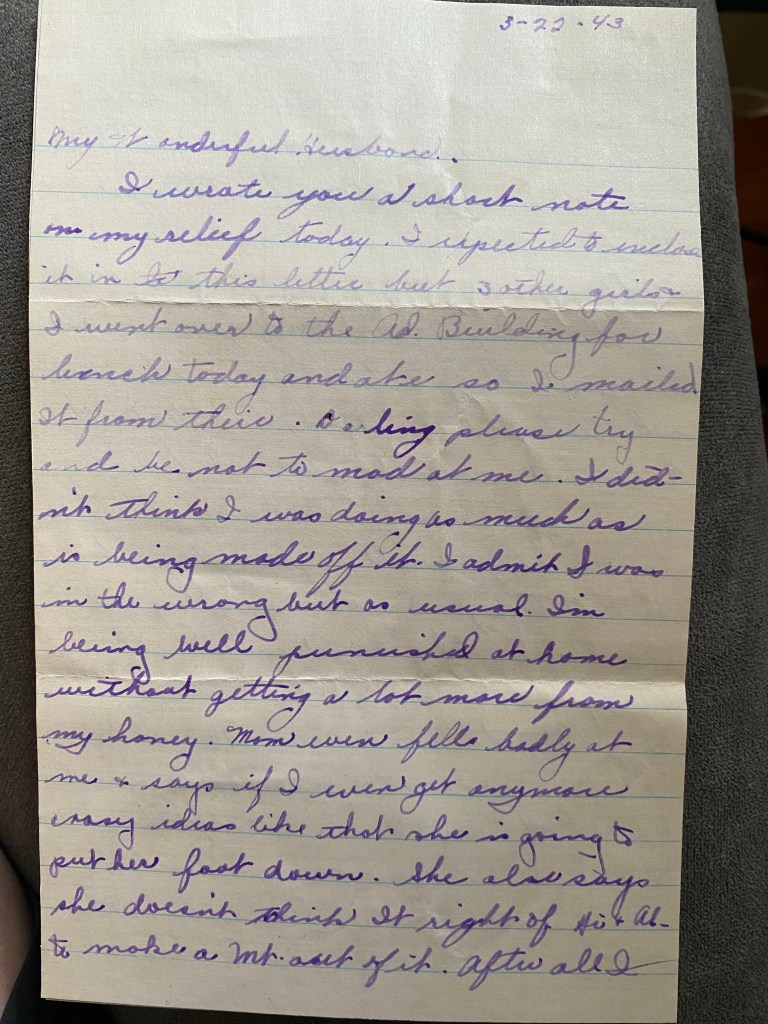 3-22-43
My Wonderful Husband.
I wrote you a short note
on my relief today. I expected to inclose
it in to this letter but 3 other girls &
I went over to the Ad. Building for
lunch today and ate so I mailed
It from their. Darling please try
and be not to mad at me. I did-
n't think I was doing as much as
is being made off it. I admit I was
in the wrong but as usual. I'm
being well punished at home
without getting a lot more from
my honey. Mom even fells badly at
me & says if I ever get anymore
crazy ideas like that she is going to
put her foot down. She also says
she doesn't think It right of Hi & Al-
to make a Mt. out of it. After all I